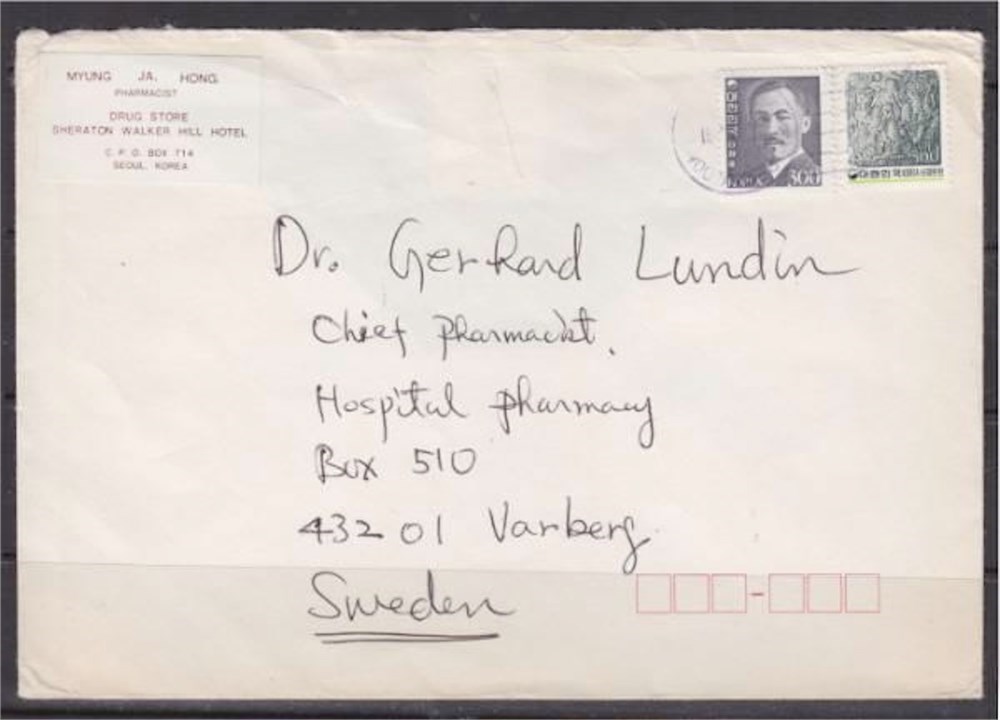 MYUNG JA. HONG
PHARMACIST
DRUG STORE
SHERATON WALKER HILL HOTEL
C. P. O. BOX 714
SEOUL, KOREA
대한민국우표
KOREA 300
500
대한민국
Dr. Gerhard Lundin
Chief Pharmacist.
Hospital Pharmacy
Box 510
432 01 Varberg.
Sweden